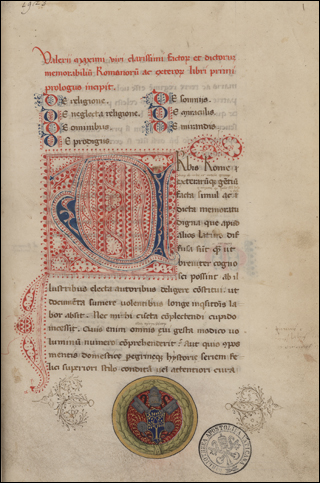 Valerii maximi viri clarissimi factor et dictorum
memorabiliū Romanorū ac exteror libri primi
prologus incipit.
De religione.
De neglecta religione.
De ominibus
De prodigiis
De somniis.
De miraculis.
De mirandis
URbis Rome
exterarūqꝫ gētiū
facta simul ac
dicta memoratu
digna que apud
alios latius dif
fusa sūt qᷓ ut
breviter cogno
sci possint ab il
lustribus electa auctoribus deligere cōstitui. ut
documēta sumere volentibus longe inqͥsitōis la
bor absit. Nec mͥ cūcta cōplectendi cupido
incessit. Quis enim omnis evi gesta modico vo
luminū numero cōprehenderit? aut quis cōpos
mentis domestice peregrineqꝫ hystorie seriem fe
lici superiori stilo conditā vel attentiori cura